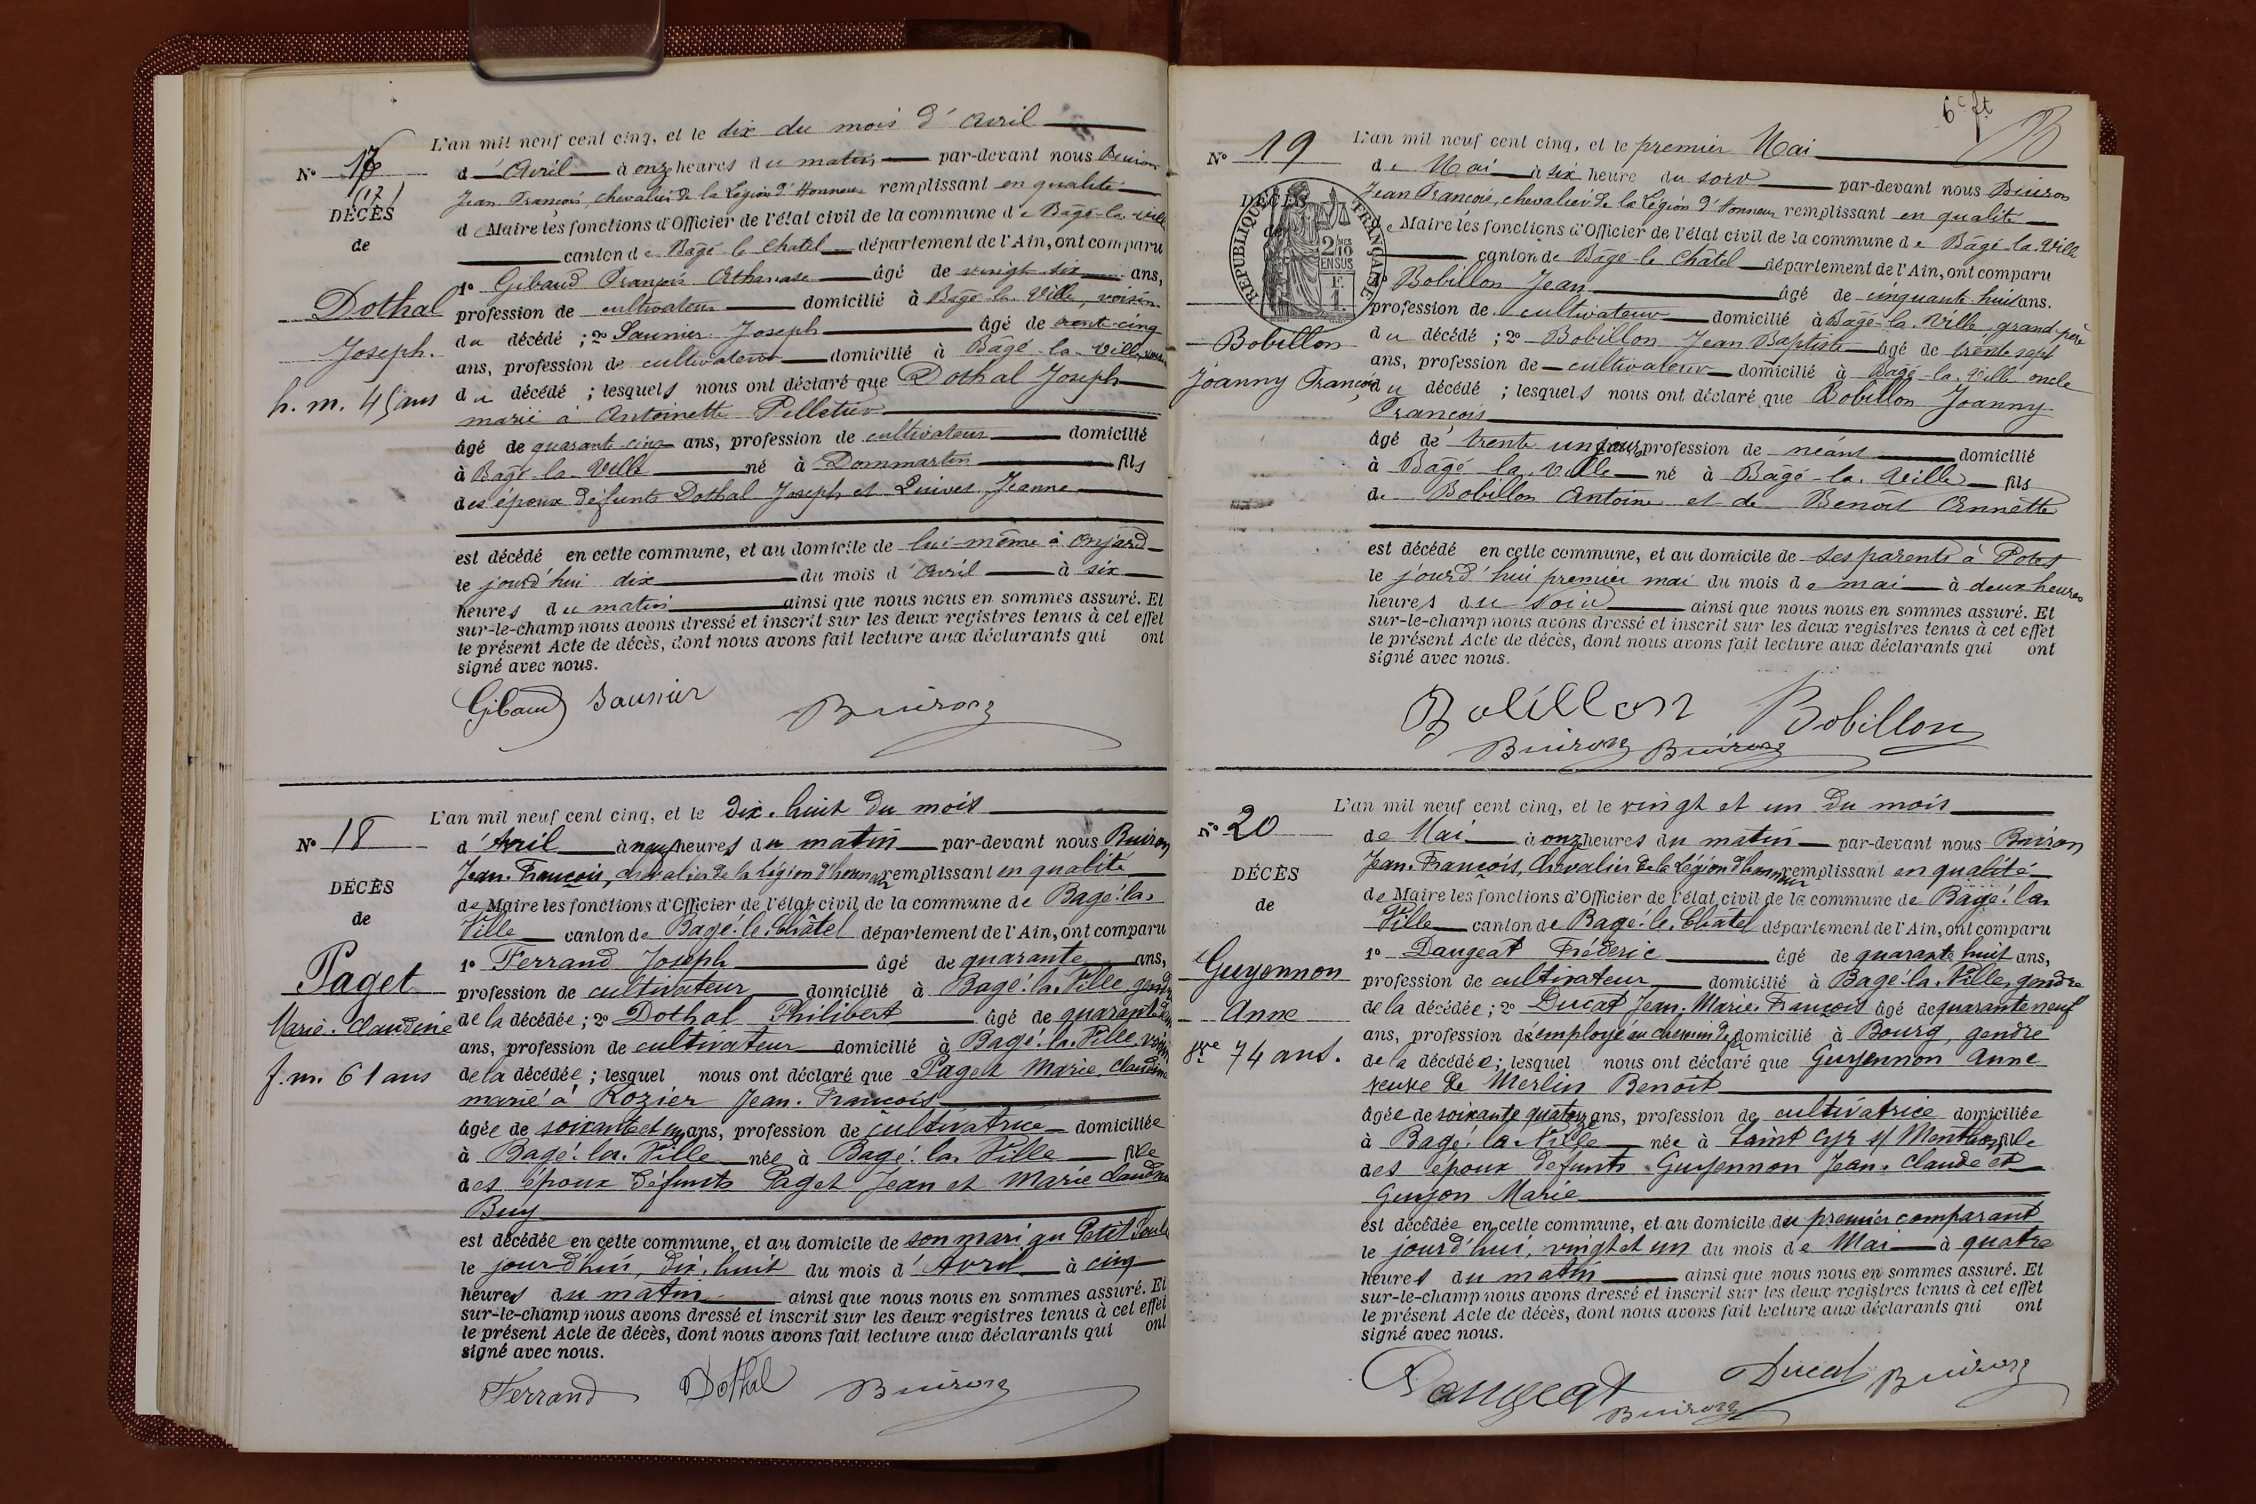 L'an mil neuf cent cinq, et le dix du mois d'avril
N° 17
(17)
DÉCÈS
de
Dothal
Joseph.
h. m. 45 ans
d'Avril à onze heures du matin par-devant nous Buiron
Jean François, chevalier de la Légion d'Honneur remplissant en qualité
de Maire les fonctions d'Officier de l'état civil de la commune de Bâgé-la-Ville
canton de Bâgé-le-Chatel département de l'Ain, ont comparu
1° Gibaud François Athanase âgé de vingt six ans,
profession de cultivateur domicilié à Bâgé-la-Ville, voisin
du décédé ; 2° Saunier Joseph âgé de trent-cinq
ans, profession de cultivateur domicilié à Bâgé-la-Ville, voisin
du décédé ; lesquels nous ont déclaré que Dothal Joseph
marié à Antoinette Pelletier
âgé de quarante-cinq ans, profession de cultivateur domicilié
à Bâgé-la-Ville né à Dommartin fils
des époux défunts Dothal Joseph et Jeanne
est décédé en cette commune, et au domicile de lui-même à Onjard
le jourd'hui dix du mois d'Avril à six
heures du matin ainsi que nous nous en sommes assuré. Et
sur-le-champ nous avons dressé et inscrit sur les deux registres tenus à cet effet
le présent Acte de décès, dont nous avons fait lecture aux déclarants qui ont
signé avec nous.
Gibaud Saunier Buiron
L'an mil neuf cent cinq, et le dix-huit du mois
N° 18
DÉCÈS
de
Paget
Marie-Claudine
f. m. 61 ans
d'Avril à neuf heures du matin par-devant nous Buiron
Jean-François, chevalier de la légion d'honneur remplissant en qualité
de Maire les fonctions d'Officier de l'état civil de la commune de Bagé-la-
Ville canton de Bagé-le-Châtel département de l'Ain, ont comparu
1° Ferrand Joseph âgé de quarante ans,
profession de cultivateur domicilié à Bagé-la-Ville, gendre
de la décédée ; 2° Dothal Philibert âgé de quarante
ans, profession de cultivateur domicilié à Bagé-la-Ville, voisin
de la décédée ; lesquel nous ont déclaré que Paget Marie, Claudine
marié à Rozier Jean-François
âgée de soixante et un ans, profession de cultivatrice domiciliée
à Bagé-la-Ville née à Bagé-la-Ville fille
des époux défunts Paget Jean et Marie Claudine
Buy
est décédée en cette commune, et au domicile de son mari, au Petit
le jourd'hui, dix-huit du mois d'Avril à cinq
heures du matin ainsi que nous nous en sommes assuré. Et
sur-le-champ nous avons dressé et inscrit sur les deux registres tenus à cet effet
le présent Acte de décès, dont nous avons fait lecture aux déclarants qui ont
signé avec nous.
Ferrand Dothal Buiron
6e ft
L'an mil neuf cent cinq, et le premier Mai
N° 19
DÉCÈS
de
RÉPUBLIQUE FRANÇAISE
2/10 EN SUS
F. 1.
Bobillon
Joanny François
de Mai à six heure du soir par-devant nous Buiron
Jean François, chevalier de la Légion d'Honneur remplissant en qualité
de Maire les fonctions d'Officier de l'état civil de la commune de Bâgé-la-Ville
canton de Bâgé-le-Châtel département de l'Ain, ont comparu
1° Bobillon Jean âgé de cinquante-huit ans.
profession de cultivateur domicilié à Bâgé-la-Ville, grand-père
du décédé ; 2° Bobillon Jean Baptiste âgé de trente sept
ans, profession de cultivateur domicilié à Bâgé-la-Ville oncle
du décédé ; lesquels nous ont déclaré que Bobillon Joanny
François
âgé de trente un jours profession de néant domicilié
à Bâgé-la-Ville né à Bâgé-la-Ville fils
de Bobillon Antoine et de Benoît Annette
est décédé en cette commune, et au domicile de ses parents à
le jourd'hui premier mai du mois de mai à deux heures
heures du soir ainsi que nous nous en sommes assuré. Et
sur-le-champ nous avons dressé et inscrit sur les deux registres tenus à cet effet
le présent Acte de décès, dont nous avons fait lecture aux déclarants qui ont
signé avec nous.
Bobillon Bobillon
Buiron Buiron
L'an mil neuf cent cinq, et le vingt et un du mois
N° 20
DÉCÈS
de
Guyennon
Anne
74 ans.
de Mai à onze heures du matin par-devant nous Buiron
Jean-François, Chevalier de la Légion d'honneur remplissant en qualité
de Maire les fonctions d'Officier de l'état civil de la commune de Bagé-la-
Ville canton de Bagé-le-Châtel département de l'Ain, ont comparu
1° Daugeat Fréderic âgé de quarante huit ans,
profession de cultivateur domicilié à Bagé-la-Ville, gendre
de la décédée ; 2° Ducat Jean-Marie-François âgé de quarante neuf
ans, profession d'employé au chemin de fer domicilié à Bourg, gendre
de la décédée ; lesquel nous ont déclaré que Guyennon Anne
veuve de Merlin Benoit
âgée de soixante quatorze ans, profession de cultivatrice domiciliée
à Bagé-la-Ville née à Saint Cyr s/ Menthon fille
des époux défunts Guyennon Jean-Claude et
Guyon Marie
est décédée en cette commune, et au domicile du premier comparant
le jourd'hui, vingt et un du mois de Mai à quatre
heures du matin ainsi que nous nous en sommes assuré. Et
sur-le-champ nous avons dressé et inscrit sur les deux registres tenus à cet effet
le présent Acte de décès, dont nous avons fait lecture aux déclarants qui ont
signé avec nous.
Daugeat Ducat Buiron
Buiron